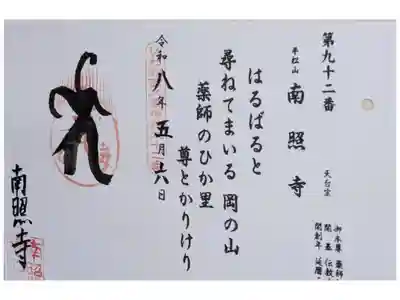 第九十二番
平松山 南照寺 天台宗
御本尊 薬師
開基 伝教
開創年 延暦
はるばると
尋ねてまいる 岡の山
薬師のひか里
尊とかりけり
令和八年五月六日
南照寺